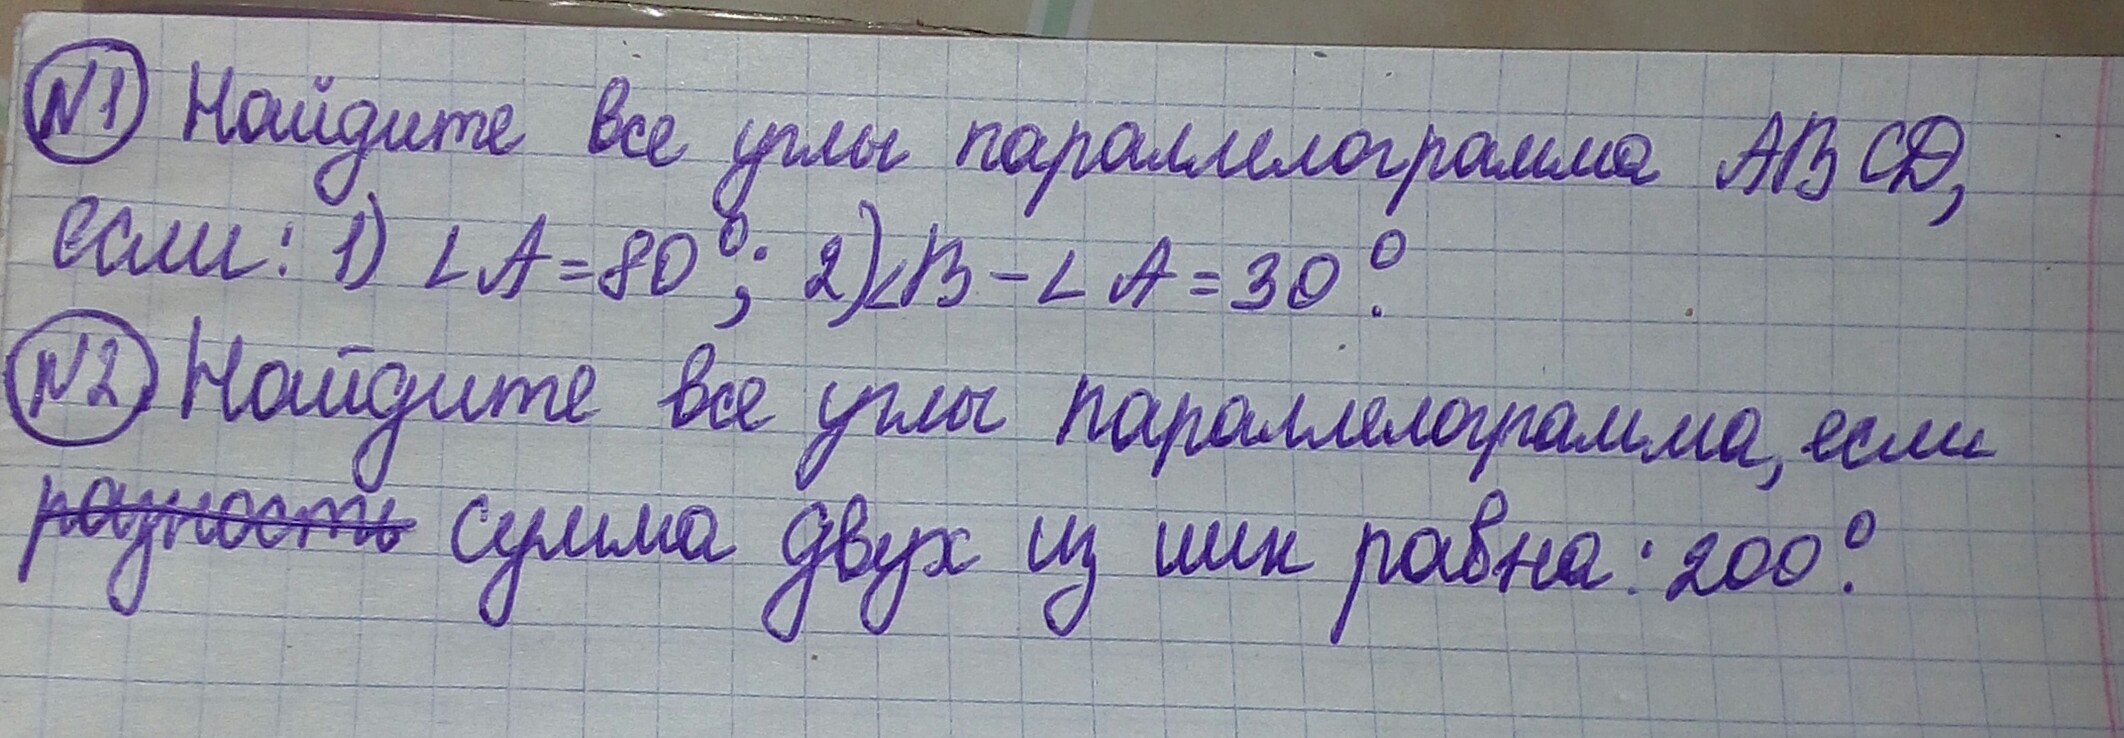 N1 Найдите все углы параллелограмма ABCD,
если: 1) ∠A=80°; 2) ∠B-∠A=30°.
N2 Найдите все углы параллелограмма, если
разность сумма двух из них равна: 200°.